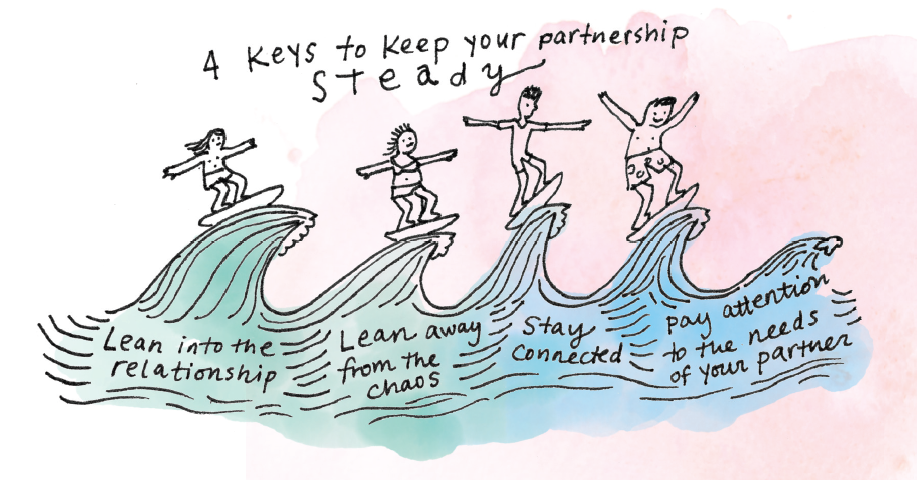 4 Keys to Keep your partnership
Steady
Lean into the
relationship
Lean away
from the
chaos
Stay
Connected
Pay attention
to the needs
of your partner